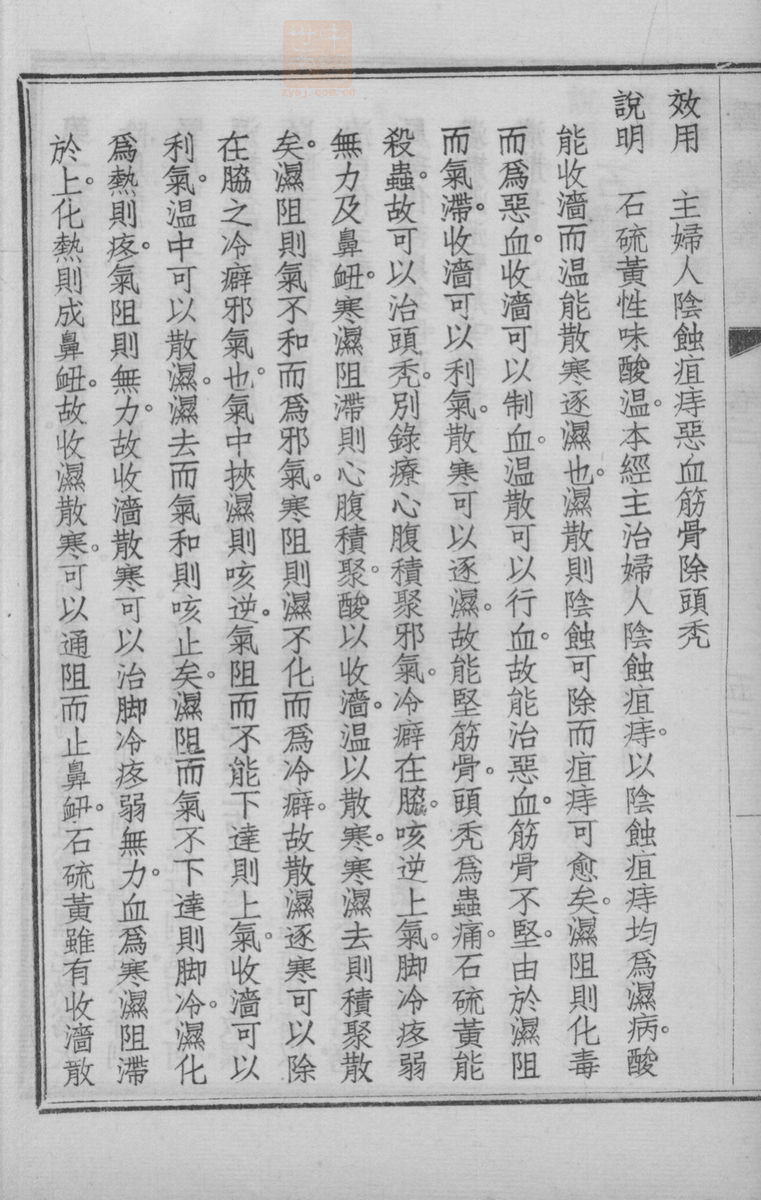 效用　主婦人陰蝕疽痔惡血筋骨除頭禿
說明　石硫黃性味酸温。本經主治婦人陰蝕疽痔。以陰蝕疽痔均爲濕病。酸
能收濇而温能散寒逐濕也。濕散則陰蝕可除而疽痔可愈矣。濕阻則化毒
而爲惡血。收濇可以制血。温散可以行血。故能治惡血。筋骨不堅。由於濕阻
而氣滯。收濇可以利氣。散寒可以逐濕。故能堅筋骨。頭禿爲蟲痛。石硫黃能
殺蟲。故可以治頭禿。別錄療心腹積聚邪氣。冷癖在脇。咳逆上氣。脚冷疼弱
無力及鼻衄。寒濕阻滯則心腹積聚。酸以收濇。温以散寒。寒濕去則積聚散
矣。濕阻則氣不和而爲邪氣。寒阻則濕不化而爲冷癖。故散濕逐寒可以除
在脇之冷癖邪氣也。氣中挾濕則咳逆。氣阻而不能下達則上氣。收濇可以
利氣。温中可以散濕。濕去而氣和則咳止矣。濕阻而氣不下達則脚冷。濕化
爲熱則疼。氣阻則無力。故收濇散寒可以治脚冷疼弱無力。血爲寒濕阻滯
於上。化熱則成鼻衄。故收濕散寒。可以通阻而止鼻衄。石硫黃雖有收濇散
zysj.com.cn